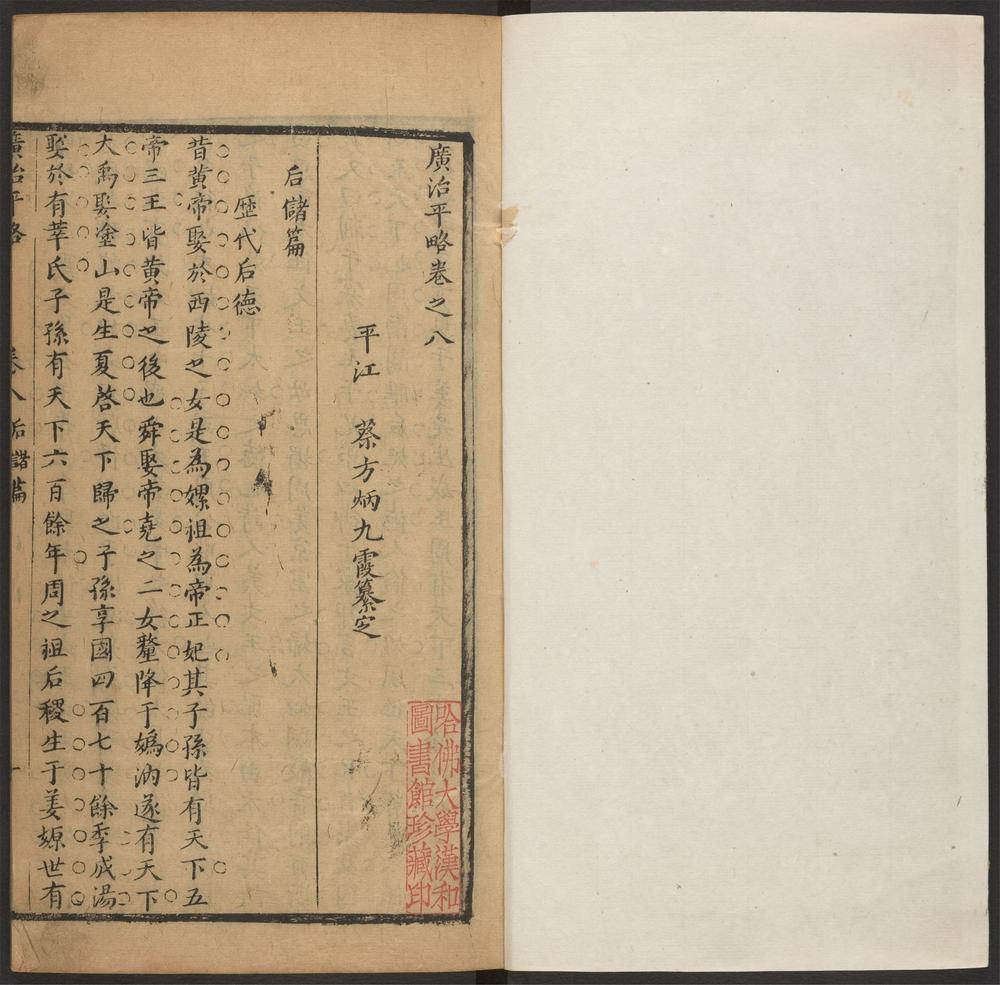 廣治平略卷之八
平江 蔡方炳九霞纂定
后儲篇
歷代后德
昔黄帝娶於西陵之女是為嫘祖為帝正妃其子孫皆有天下五
帝三王皆黄帝之後也舜娶帝堯之二女釐降于媯汭遂有天下
大禹娶塗山是生夏啓天下歸之子孫享國四百七十餘季成湯
娶於有莘氏子孫有天下六百餘年周之祖后稷生于姜嫄世有
廣治平略 卷八 后諸篇 一
哈佛大學漢和
圖書館珍藏印